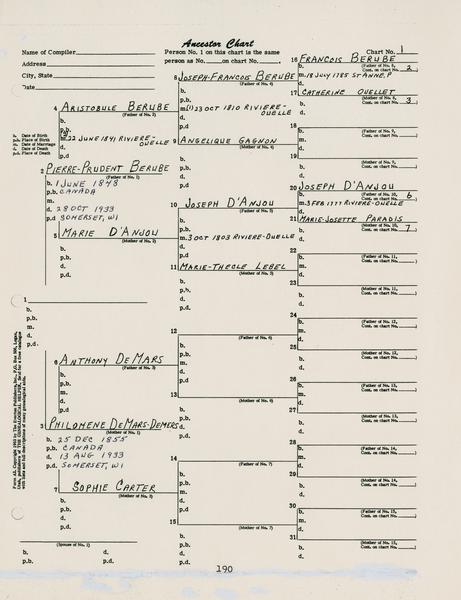 Ancestor Chart
Name of Compiler
Person No. 1 on this chart is the same
Chart No. 1
Address
person as No. on chart No. .
City, State
Date
16 FRANCOIS BERUBE
(Father of No. 8,
b. Cont. on chart No. 2)
m. 18 JULY 1785 ST ANNE, P
d.
8 JOSEPH-FRANCOIS BERUBE
(Father of No. 4)
b.
p.b.
m.(1) 23 OCT 1810 RIVIERE-
OUELLE
d.
p.d.
17 CATHERINE OUELLET
(Mother of No. 8,
b. Cont. on chart No. 3)
d.
4 ARISTOBULE BERUBE
(Father of No. 2)
b. Date of Birth
p.b. Place of Birth
m. Date of Marriage
d. Date of Death
p.d. Place of Death
b.
m. 22 JUNE 1841 RIVIERE-
OUELLE
d.
p.d.
18
b.
m.
d.
9 ANGELIQUE GAGNON
(Mother of No. 4)
b.
p.b.
d.
p.d.
19
(Mother of No. 9,
b. Cont. on chart No. )
d.
2 PIERRE-PRUDENT BERUBE
(Father of No. 1)
b. 1 JUNE 1848
p.b. CANADA
m.
d. 28 OCT 1933
p.d. SOMERSET, WI
20 JOSEPH D'ANJOU
(Father of No. 10,
b. Cont. on chart No. 6)
m. 3 FEB 1777 RIVIERE-OUELLE
d.
10 JOSEPH D'ANJOU
(Father of No. 5)
b.
p.b.
m. 3 OCT 1803 RIVIERE-OUELLE
d.
p.d.
21 MARIE-JOSETTE PARADIS
(Mother of No. 10,
b. Cont. on chart No. 7)
d.
5 MARIE D'ANJOU
(Mother of No. 2)
b.
p.b.
d.
p.d.
22
(Father of No. 11,
b. Cont. on chart No. )
m.
d.
11 MARIE-THECLE LEBEL
(Mother of No. 5)
b.
p.b.
d.
p.d.
23
(Mother of No. 11,
b. Cont. on chart No. )
d.
1
b.
p.b.
m.
d.
p.d.
24
(Father of No. 12,
b. Cont. on chart No. )
m.
d.
12
(Father of No. 6)
b.
p.b.
m.
d.
p.d.
25
(Mother of No. 12,
b. Cont. on chart No. )
d.
6 ANTHONY DEMARS
(Father of No. 3)
b.
p.b.
m.
d.
p.d.
26
(Father of No. 13,
b. Cont. on chart No. )
m.
d.
13
(Mother of No. 6)
b.
p.b.
d.
p.d.
27
(Mother of No. 13,
b. Cont. on chart No. )
d.
3 PHILOMENE DEMARS-DEMERS
(Mother of No. 1)
b. 25 DEC 1855
p.b. CANADA
d. 13 AUG 1933
p.d. SOMERSET, WI
28
(Father of No. 14,
b. Cont. on chart No. )
m.
d.
14
(Father of No. 7)
b.
p.b.
m.
d.
p.d.
29
(Mother of No. 14,
b. Cont. on chart No. )
d.
7 SOPHIE CARTER
(Mother of No. 3)
b.
p.b.
d.
p.d.
30
(Father of No. 15,
b. Cont. on chart No. )
m.
d.
15
(Mother of No. 7)
b.
p.b.
d.
p.d.
31
(Mother of No. 15,
b. Cont. on chart No. )
d.
(Spouse of No. 1)
b. d.
p.b. p.d.
190